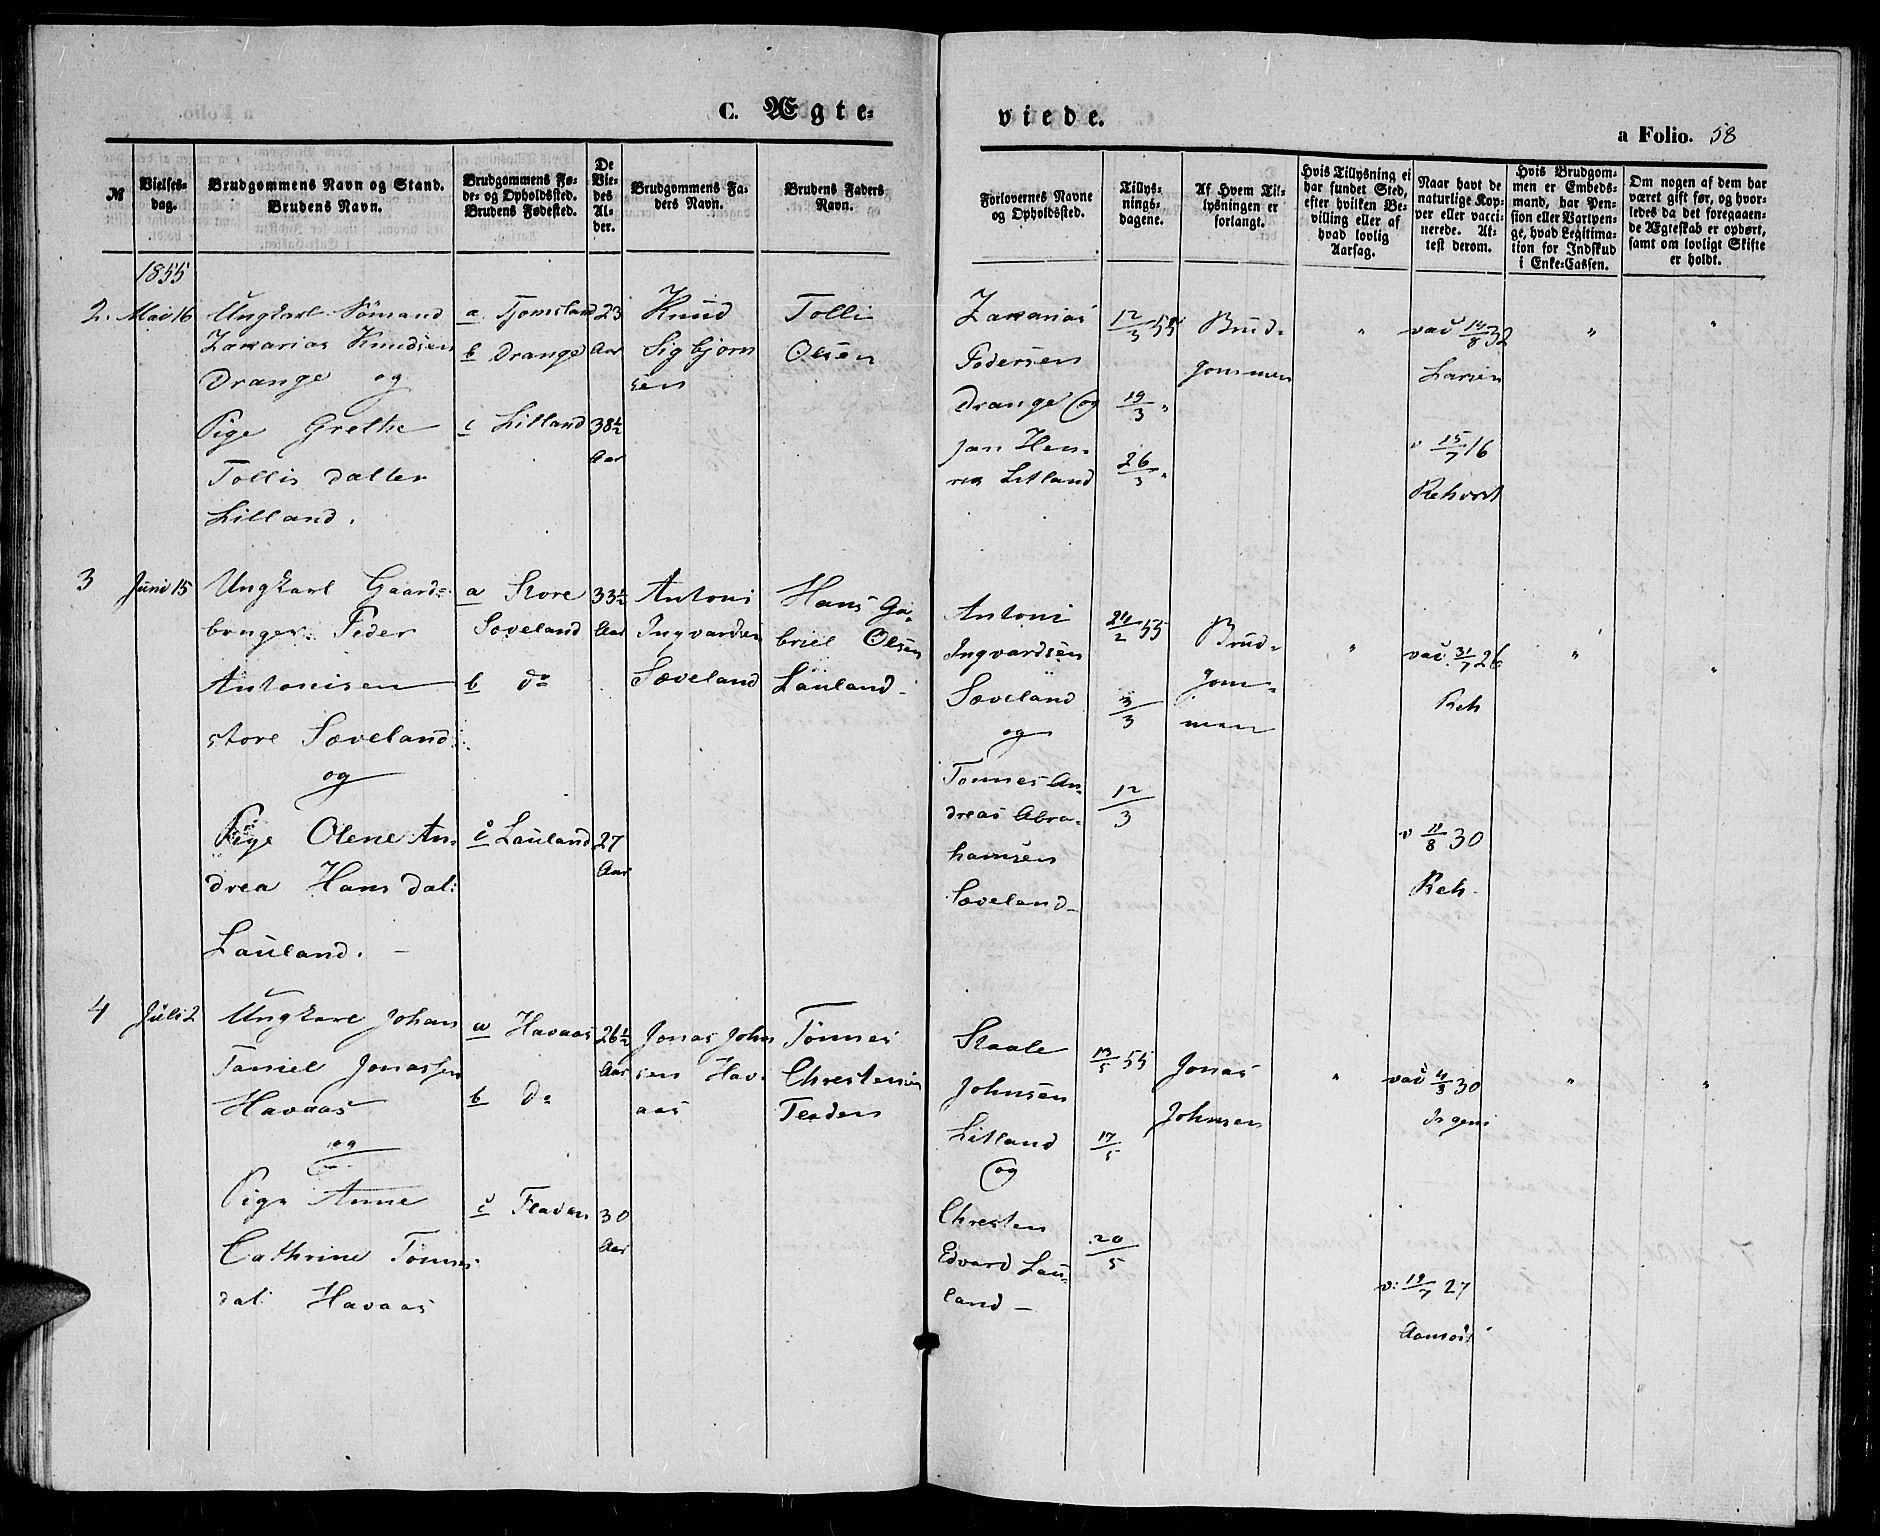 C. Ægte=
viede.
a Folio. 58
№
Vielses-
dag.
Brudgommens Navn og Stand.
Brudens Navn.
Brudgommens Fø-
de- og Opholdssted.
Brudens Fødested.
De
Vie-
des
Al-
der.
Brudgommens Fa-
ders Navn.
Brudens Faders
Navn.
Forlovernes Navne
og Opholdssted.
Tillys-
nings-
dagene.
Af Hvem Til-
lysningen er
forlangt.
Hvis Tillysning ei
har fundet Sted,
efter hvilken Be-
villing eller af
hvad lovlig
Aarsag.
Naar havt de
naturlige Kop-
per eller vacci-
nerede. At-
test derom.
Hvis Brudgom-
men er Embeds-
mand, har Pen-
sion eller Vartpen-
ge, hvad Legitima-
tion for Indskud
i Enke-Cassen.
Om nogen af dem har
været gift før, og hvor-
ledes da det foregaaen-
de Ægteskab er ophørt,
samt om lovligt Skifte
er holdt.
1855
2. Mai 16
Ungkarl Sömand
Zakarias Knudsen
Drange og
Pige Grethe
Tollis datter
Litland.
a Tjomsland
b Drange
c Litland
23
Aar
38½
Aar
Knud
Sigbjorn
sen
Tolli
Olsen
Zakarias
Pedersen
Drange og
Jan Hen-
rik Litland
12/3 55
19/3 "
26/3 "
Brud-
gommen
"
vac 14/8 32
Larsen
v 15/7 16
Rehvort
"
"
3 Juni 15
Ungkarl Gaard-
bruger Peder
Antonisen
store Sæveland
og
Pige Olene An-
drea Hans dal:
Lauland.
a Store
Soveland
b do
c Lauland
33½
Aar
27
Aar
Antoni
Ingvardsen
Sæveland
Hans Ga-
briel Olsen
Lauland
Antoni
Ingvardsen
Sæveland
og
Tonnes An-
dreas Abra-
hamsen
Sæveland
24/2 55
3/3
12/3
Brud-
gom-
men
"
vac. 31/7 26
Reh
v 11/8 30
Reh.
"
"
4 Juli 2
Ungkarl Johan
Taniel Jonassen
Havaas
og
Pige Anne
Cathrine Tönnes
dal: Havaas
a Havaas
b do
c Fladen
26½
Aar
30
Aar
Jonas John
sen Hav-
aas
Tönnes
Chrestensen
Fladen
Staale
Johnsen
Litland
og
Chresten
Edvard Lau-
land
13/5 55
17/5
20/5
Jonas
Johnsen
"
vac 4/3 30
Irgens
v: 19/7 27
"
"